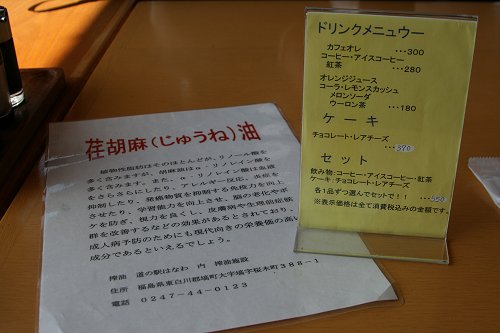 ドリンクメニュウー
カフェオレ ･･･300
コーヒー・アイスコーヒー
紅茶 ･･･280
オレンジジュース
コーラ・レモンスカッシュ
メロンソーダ
ウーロン茶 ･･･180
ケーキ
チョコレート・レアチーズ
･･･370
セット
飲み物・コーヒー・アイスコーヒー・紅茶
ケーキ・チョコレート・レアチーズ
各1品ずつ選んでセットで！！ ･･･550
※表示価格は全て消費税込みの金額です。
荏胡麻(じゅうね)油
植物性脂肪はそのほとんどが、リノール酸を
多く含みますが、胡麻油は
多く含みます。また、
をさらさらにしたり、アレルギー反応、炎症を
抑制したり、発癌物質を抑制する免疫力を向上
させたり、学習能力を向上させ、脳の老化やボ
ケを防ぎ、視力を良くし、皮膚病や生理前症候
群を改善するなどの効果があるとされており、
成人病予防のためにも現代向きの栄養価の高い
成分であるといえるでしょう。
搾油 道の駅はなわ 内 搾油施設
住所 福島県東白川郡塙町大字塙字桜木町388-1
電話 0247-44-0123